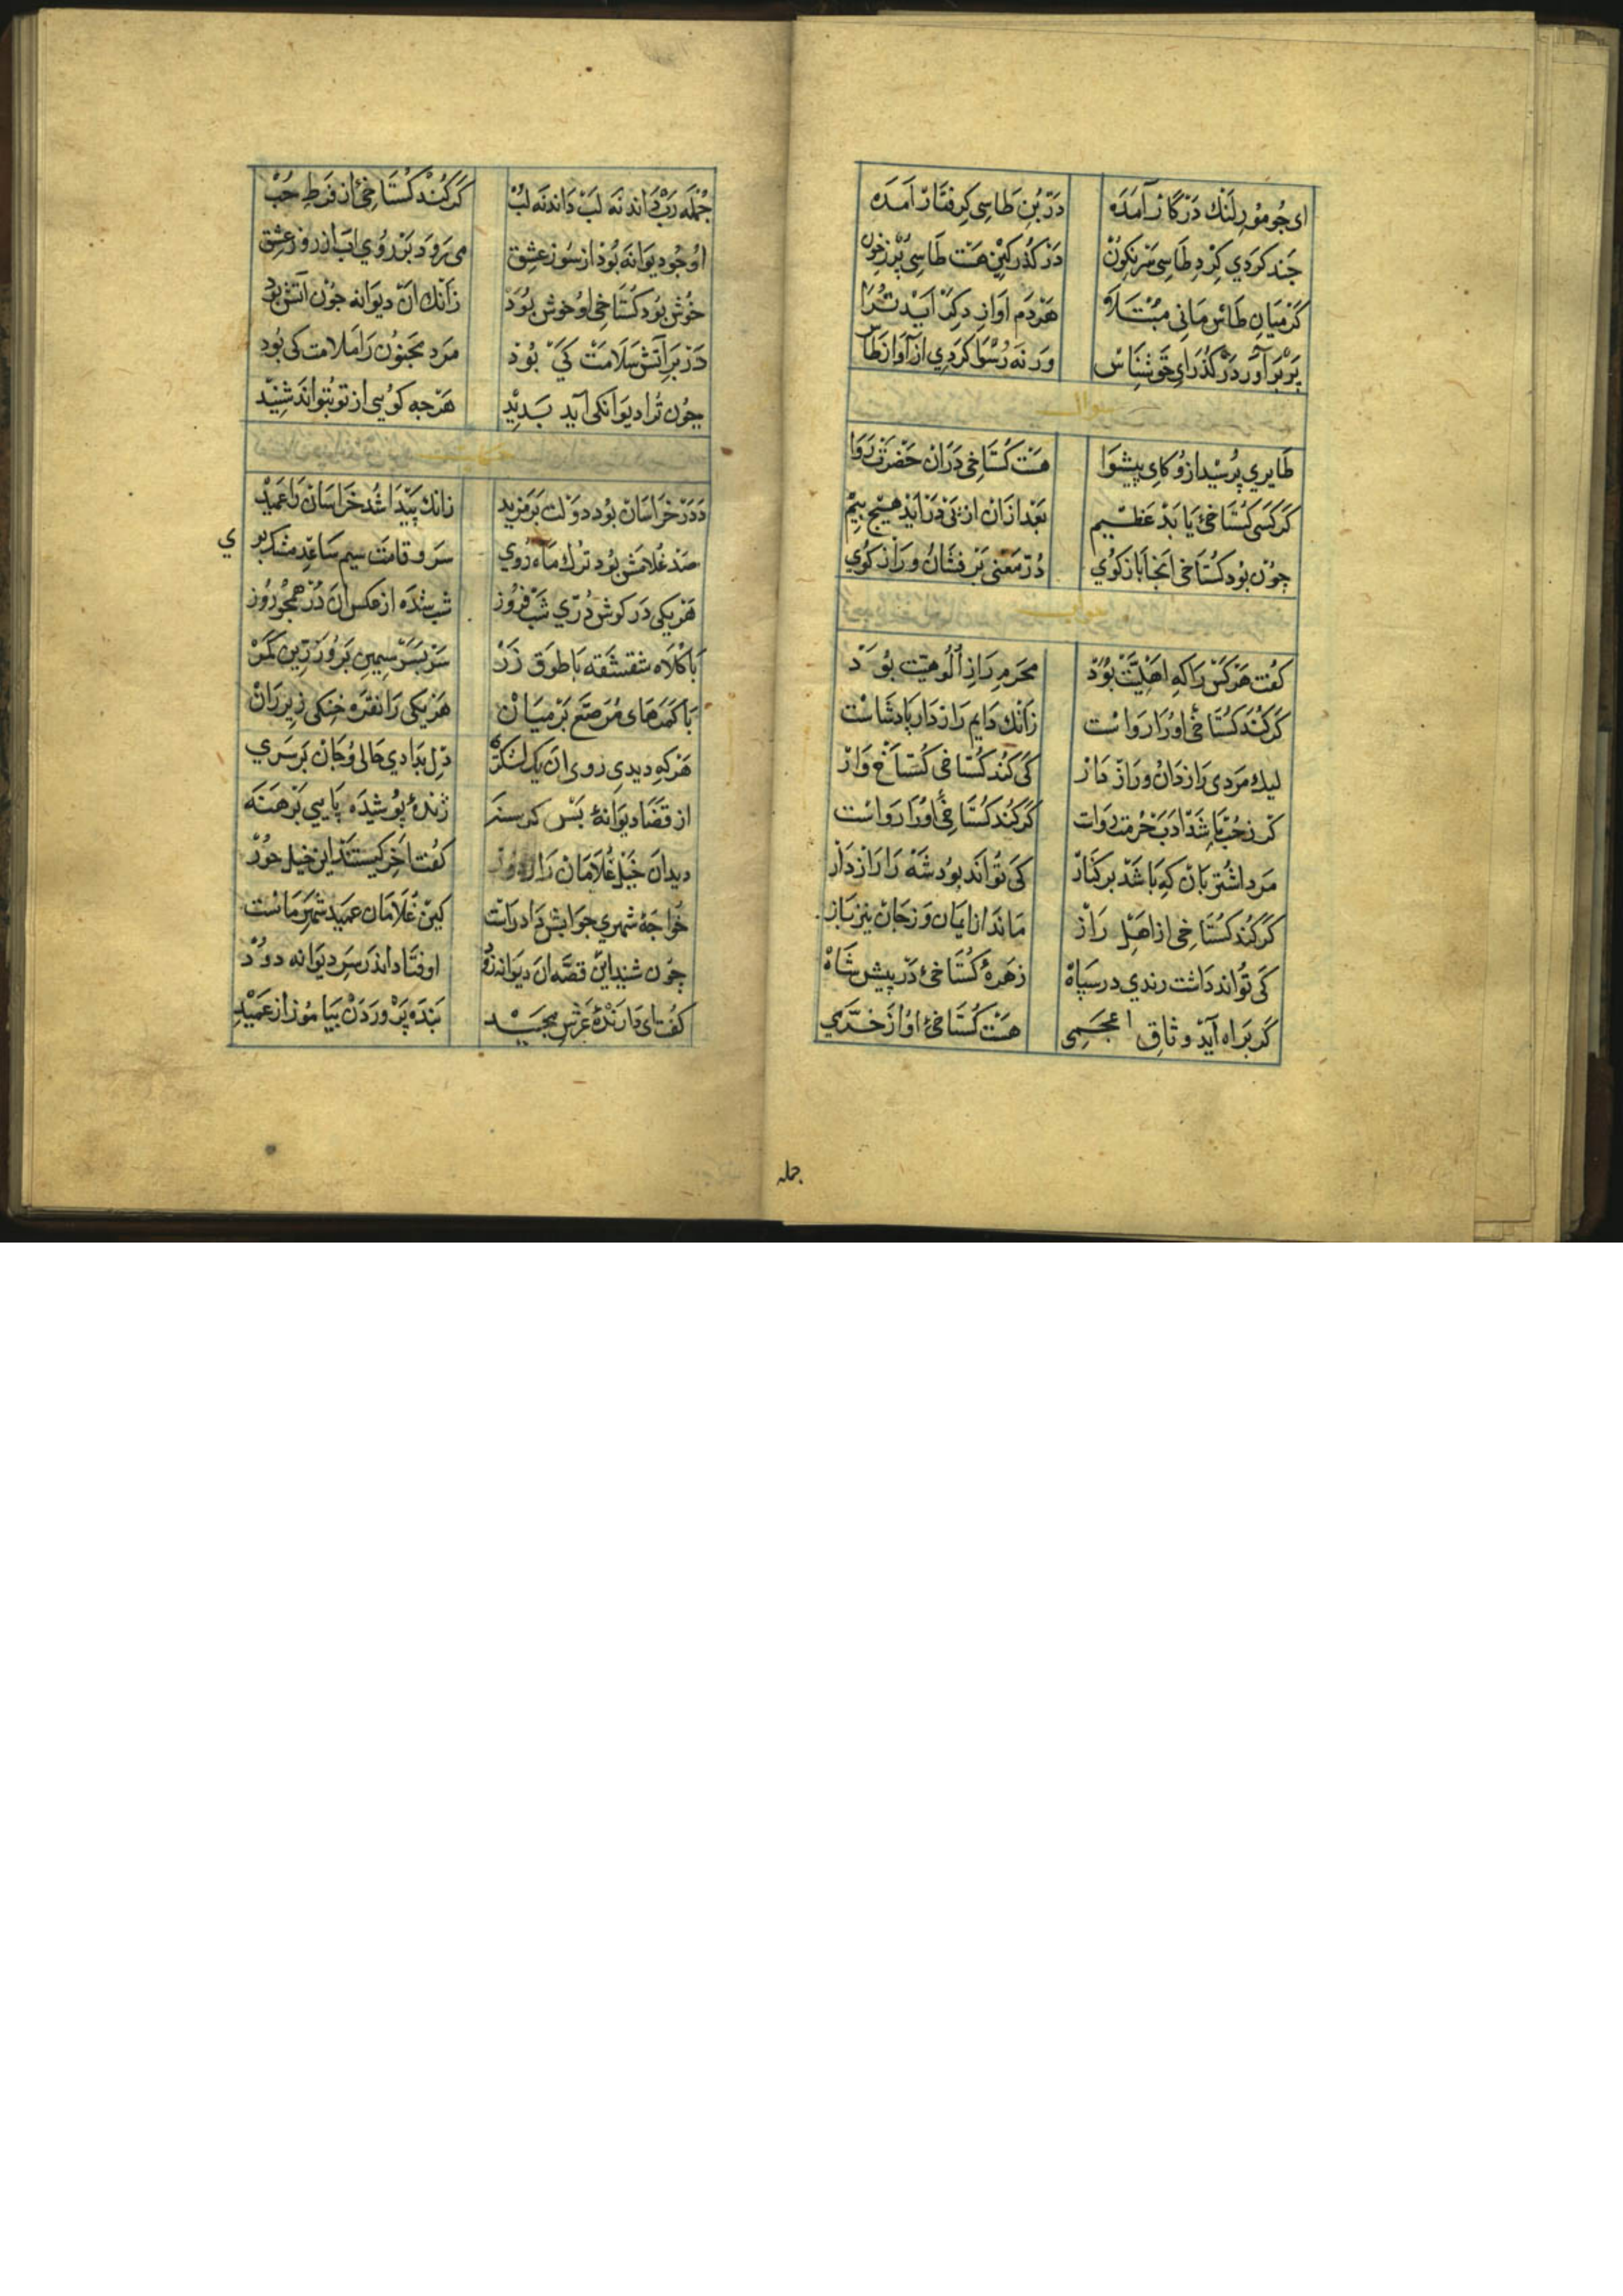 ای جو مور لنك در كار آمده در بن طاسی كرفتار آمده
جند كردی كرد طاسی سرنكون در كذر كین هست طاسی پر زخون
كر میان طاس مانی مبتلا هر دم آوازی دكر آید ترا
پر بر آور در كذر ای حق شناس ور نه رسوا كردی از آواز طاس
سوال
طایری پرسید ازو كای پیشوا هست كستاخی دران حضرت روا
كر كسی كستاخی یابد عظیم بعد ازان از پی در آید هیج بیم
چون بود كستاخی آنجا باز كوی در معنی بر فشان و راز كوی
جواب
كفت هر كس را كه اهلیت بود محرم راز الوهیت بود
كر كند كستاخی اورا رواست زانك دایم رازدار پادشاست
لیك مردی رازدان و رازدار كی كند كستاخی كستاخ وار
كر ز حب باشد ادب حرمت ز وات كر كند كستاخی اورا رواست
مرد اشتربان كه باشد بر كنار كی تواند بود شه را رازدار
كر كند كستاخی از اهل راز ماند از ایمان وز جان نیز باز
كی تواند داشت رندی در سپاه زهره كستاخی در پیش شاه
كر براه آید وثاق اعجمی هست كستاخی او از خرمی
جمله
جمله رب داند نه لب داند نه لب كر كند كستاخی از فرط حب
او جو دیوانه بود از سوز عشق می رود بر روی آب از روز عشق
خوش بود كستاخی او خوش بود زانك آن دیوانه جون آتش بود
در بر آتش سلامت كی بود مرد مجنون را ملامت كی بود
چون ترا دیوانكی آید بدید هرجه كویی از تو بتواند شنید
حكایت
در خراسان بود دولت بر مزید زانك پیدا شد خراسان را عمید
صد غلامش بود ترك ماه روی سرو قامت سیم ساعد مشكبوی
هر یكی در كوش دری شب فروز شب شده از عكس آن در همجو روز
با كلاه شقشقه با طوق زر سر بسر سیمین بر و زرین كمر
با كمرهای مرصع بر میان هر یكی را نقره خنكی زیر ران
هر كه دیدی روی آن یك لشكری دل بدادی حالی و جان بر سری
از قضا دیوانه بس كرسنه ژنده پوشیده پایی برهنه
دید آن خیل غلامان را ز دور كفت آخر كیستند این خیل حور
خواجه شهری جوابش داد راست كین غلامان عمید شهر ماست
چون شنید این قصه آن دیوانه زود اوفتاد اندر سر دیوانه دود
كفت ای دارنده عرش مجید بنده پروردن بیاموز از عمید